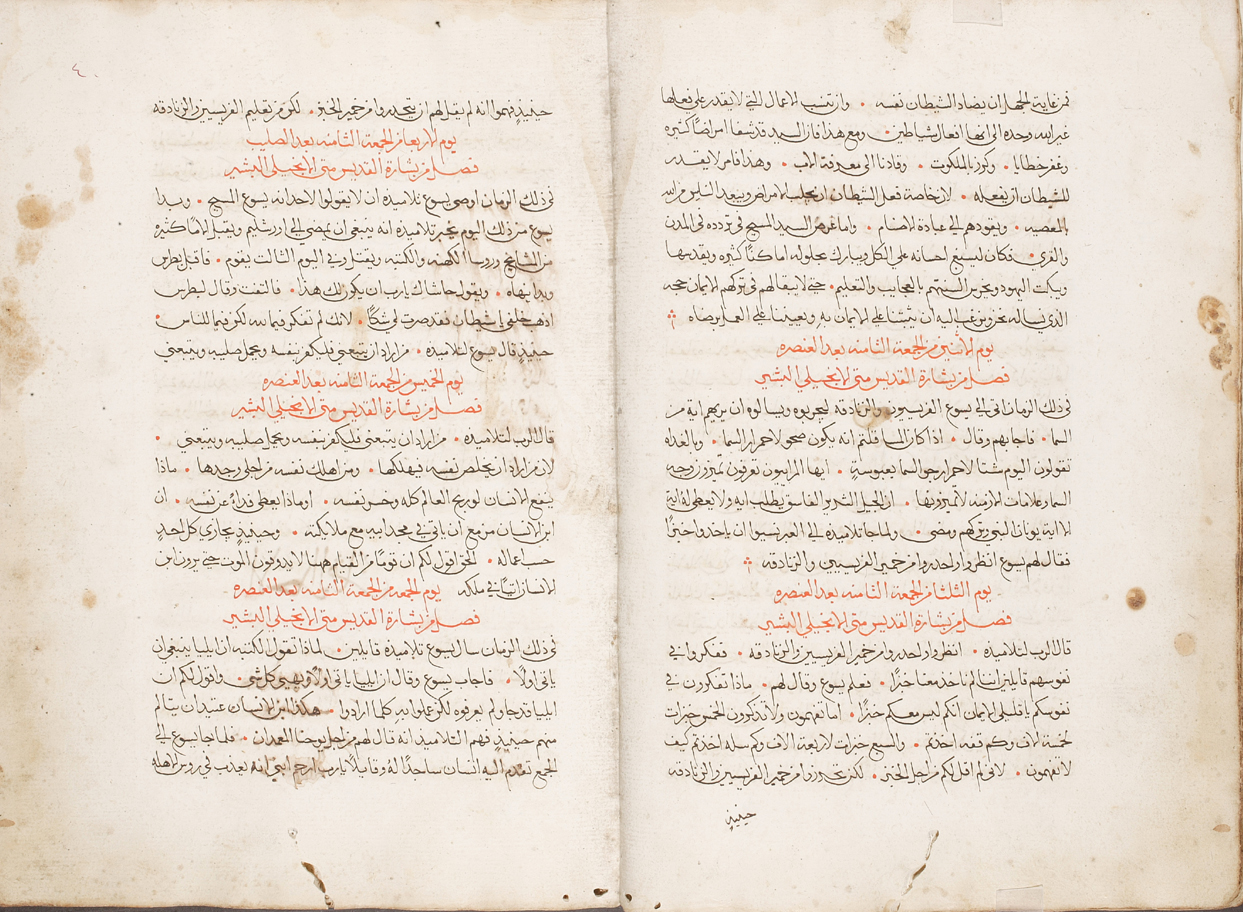 فمن غاية الجهل ان يضاد الشيطان نفسه • وان تنسب الاعمال التي لا يقدر على فعلها
غير الله وحده الى انها افعال شياطين • ومع هذا فان السيد قد شفا امراضا كثيره
وغفر خطايا • وكرز بالملكوت • وقادنا الى معرفة الاب • وهذا فامر لا يقدر
للشيطان ان يفعله • لان خاصة فعل الشيطان ان يجلب الامراض ويبعد الناس من الله
بالمعصيه • ويقودهم الى عبادة الاصنام • واما غرض السيد المسيح في تردده في المدن
والقرى • فكان ليسبغ احسانه على الكل ويبارك بحلوله اماكنا كثيره ويقدسها
ويبكت اليهود ويخرس السنتهم بالعجايب والتعليم • حتى لا يبقا لهم في تركهم الايمان حجه
الذي نساله نحن ونرغب اليه ان يثبتنا على الايمان به ويعيننا على العمل برضاه
يوم الاثنين من الجمعة الثامنه بعد العنصره
فصل من بشارة القديس متى الانجيلي البشير
في ذلك الزمان اتى الى يسوع الفريسيون والزنادقه ليجربوه ويسالوه ان يريهم اية من
السما • فاجابهم وقال • اذا كان المسا قلتم انه يكون صحو لاحمرار السما • وبالغداه
تقولون اليوم شتا لاحمرار جو السما بعبوسة • ايها المرايون تعرفون تميزون وجه
السما وعلامات الازمنه لا تميزونها • ان الجيل الشرير الفاسق يطلب ايه ولا يعطى له اية
الا اية يونان النبي وتركهم ومضى • ولما جا تلاميذه الى العبر نسيوا ان ياخذوا خبزًا
فقال لهم يسوع انظروا واحذروا من خمير الفريسيين والزنادقه
يوم الثلثا من الجمعة الثامنه بعد العنصره
فصل من بشارة القديس متى الانجيلي البشير
قال الرب لتلاميذه • انظروا واحذروا من خمير الفريسيين والزنادقه • ففكروا في
نفوسهم قايلين اننا لم ناخذ معنا خبزًا • فعلم يسوع وقال لهم • ماذا تفكرون في
نفوسكم يا قليلي الايمان انكم ليس معكم خبزًا • اما تفهمون ولا تذكرون الخمس خبزات
لخمسة الاف وكم قفه اخذتم • والسبع خبزات لاربعة الاف وكم سله اخذتم كيف
لا تفهمون • لاني لم اقل لكم من اجل الخبز • لكن تحذروا من خمير الفريسيين والزنادقه
حينيذٍ
٤٠
حينيذٍ فهموا انه لم يقل لهم ان يتحذروا من خمير الخبز • لكن من تعليم الفريسيين والزنادقه
يوم الاربعا من الجمعة الثامنه بعد الصليب
فصل من بشارة القديس متى الانجيلي البشير
في ذلك الزمان اوصى يسوع تلاميذه ان لا يقولوا لاحد انه يسوع المسيح • وبدا
يسوع من ذلك اليوم يخبر تلاميذه انه ينبغي ان يمضي الى اورشليم ويقبل الامًا كثيره
من المشايخ وروسا الكهنه والكتبه ويقتل وفي اليوم الثالت يقوم • فاقبل بطرس
وبدا ينهاه • ويقول حاشاك يا رب ان يكون لك هذا • فالتفت وقال لبطرس
اذهب خلفي يا شيطان فقد صرت لي شكًا • لانك لم تفكر فيما لله لكن فيما للناس •
حينيذ قال يسوع لتلاميذه • من اراد ان يتبعني فليكفر بنفسه ويحمل صليبه ويتبعني
يوم الخميس من الجمعة الثامنه بعد العنصره
فصل من بشارة القديس متى الانجيلي البشير
قال الرب لتلاميذه • من اراد ان يتبعني فليكفر بنفسه ويحمل صليبه ويتبعني •
لان من اراد ان يخلص نفسه فيهلكها • ومن اهلك نفسه من اجلي وجدها • ماذا
ينفع الانسان لو ربح العالم كله وخسر نفسه • او ماذا يعطي فداءً عن نفسه • ان
ابن الانسان مزمع ان ياتي في مجد ابيه مع ملايكته • وحينيذٍ يجازي كل احدٍ
حسب اعماله • الحق اقول لكم ان قومًا من القيام ههنا لا يذوقون الموت حتى يرون ابن
الانسان اتيًا في ملكه يوم الجمعه من الجمعة الثامنه بعد العنصره
فصل من بشارة القديس متى الانجيلي البشير
في ذلك الزمان سال يسوع تلاميذه قايلين • لماذا تقول الكتبه ان ايليا ينبغي ان
ياتي اولًا • فاجاب يسوع وقال ان ايليا ياتي اولًا ويهيي كل شي • واقول لكم ان
ايليا قد جا ولم يعرفوه لكن عملوا به كلما ارادوا • هكذا ابن الانسان عتيد ان يتالم
منهم حينيذٍ فهم التلاميذ انه قال لهم من اجل يوحنا المعمدان • فلما جا يسوع الى
الجمع تقدم اليه انسان ساجدًا له وقايلًا يا رب ارحم ابني انه يعذب في روس الاهله